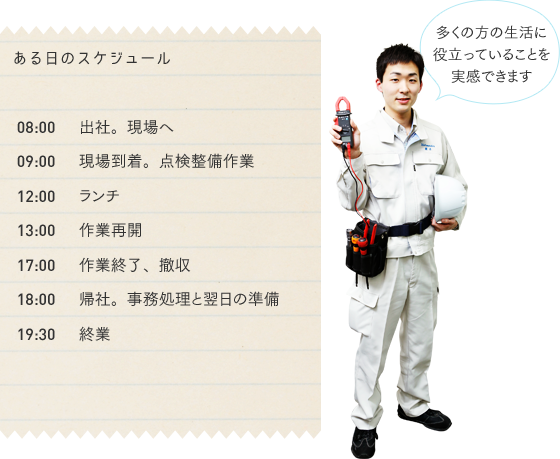 ある日のスケジュール
08:00 出社。現場へ
09:00 現場到着。点検整備作業
12:00 ランチ
13:00 作業再開
17:00 作業終了、撤収
18:00 帰社。事務処理と翌日の準備
19:30 終業
多くの方の生活に
役立っていることを
実感できます